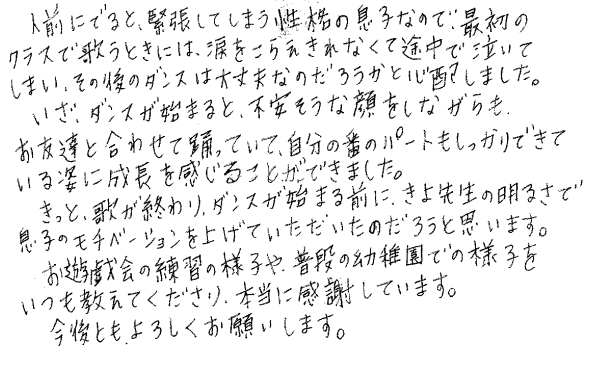 人前にでると、緊張してしまう性格の息子なので、最初の
クラスで歌うときには、涙をこらえきれなくて途中で泣いて
しまい、その後のダンスは大丈夫なのだろうかと心配しました。
いざ、ダンスが始まると、不安そうな顔をしながらも、
お友達と合わせて踊っていて、自分の番のパートもしっかりできて
いる姿に成長を感じることができました。
きっと、歌が終わり、ダンスが始まる前に、きよ先生の明るさで
息子のモチベーションを上げていただいたのだろうと思います。
お遊戯会の練習の様子や、普段の幼稚園での様子を
いつも教えてくださり、本当に感謝しています。
今後とも、よろしくお願いします。